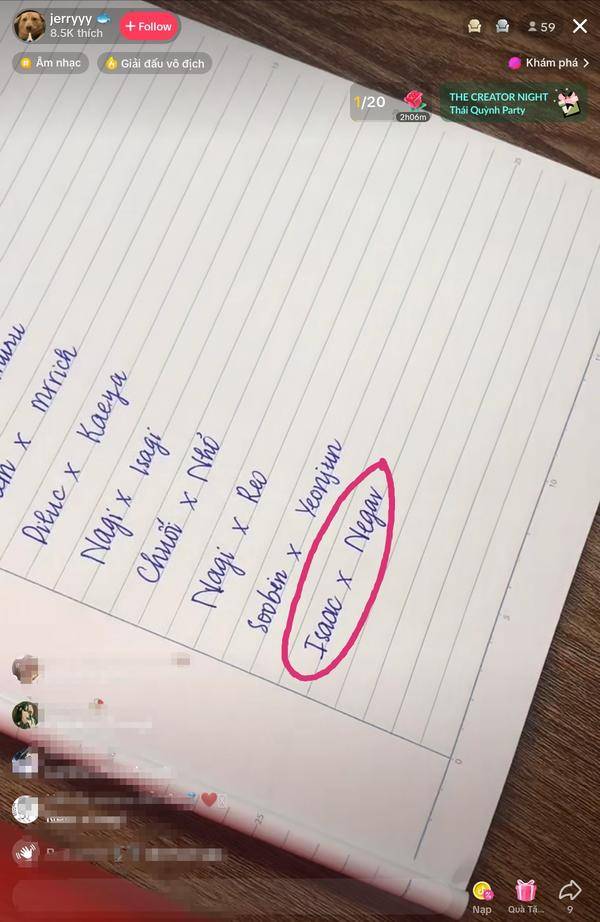 jerryyy
8.5K thích
+ Follow
59
Âm nhạc
Giải đấu vô địch
Khám phá
1/20
2h06m
THE CREATOR NIGHT
Thái Quỳnh Party
x mrrich
Diluc x Kaeya
Nagi x Isagi
Chuối x Nhỏ
Nagi x Reo
Soobin x Yeonjun
Isaac x Negav
15
15
10
5
0
Nạp
Quà Tặ...
9